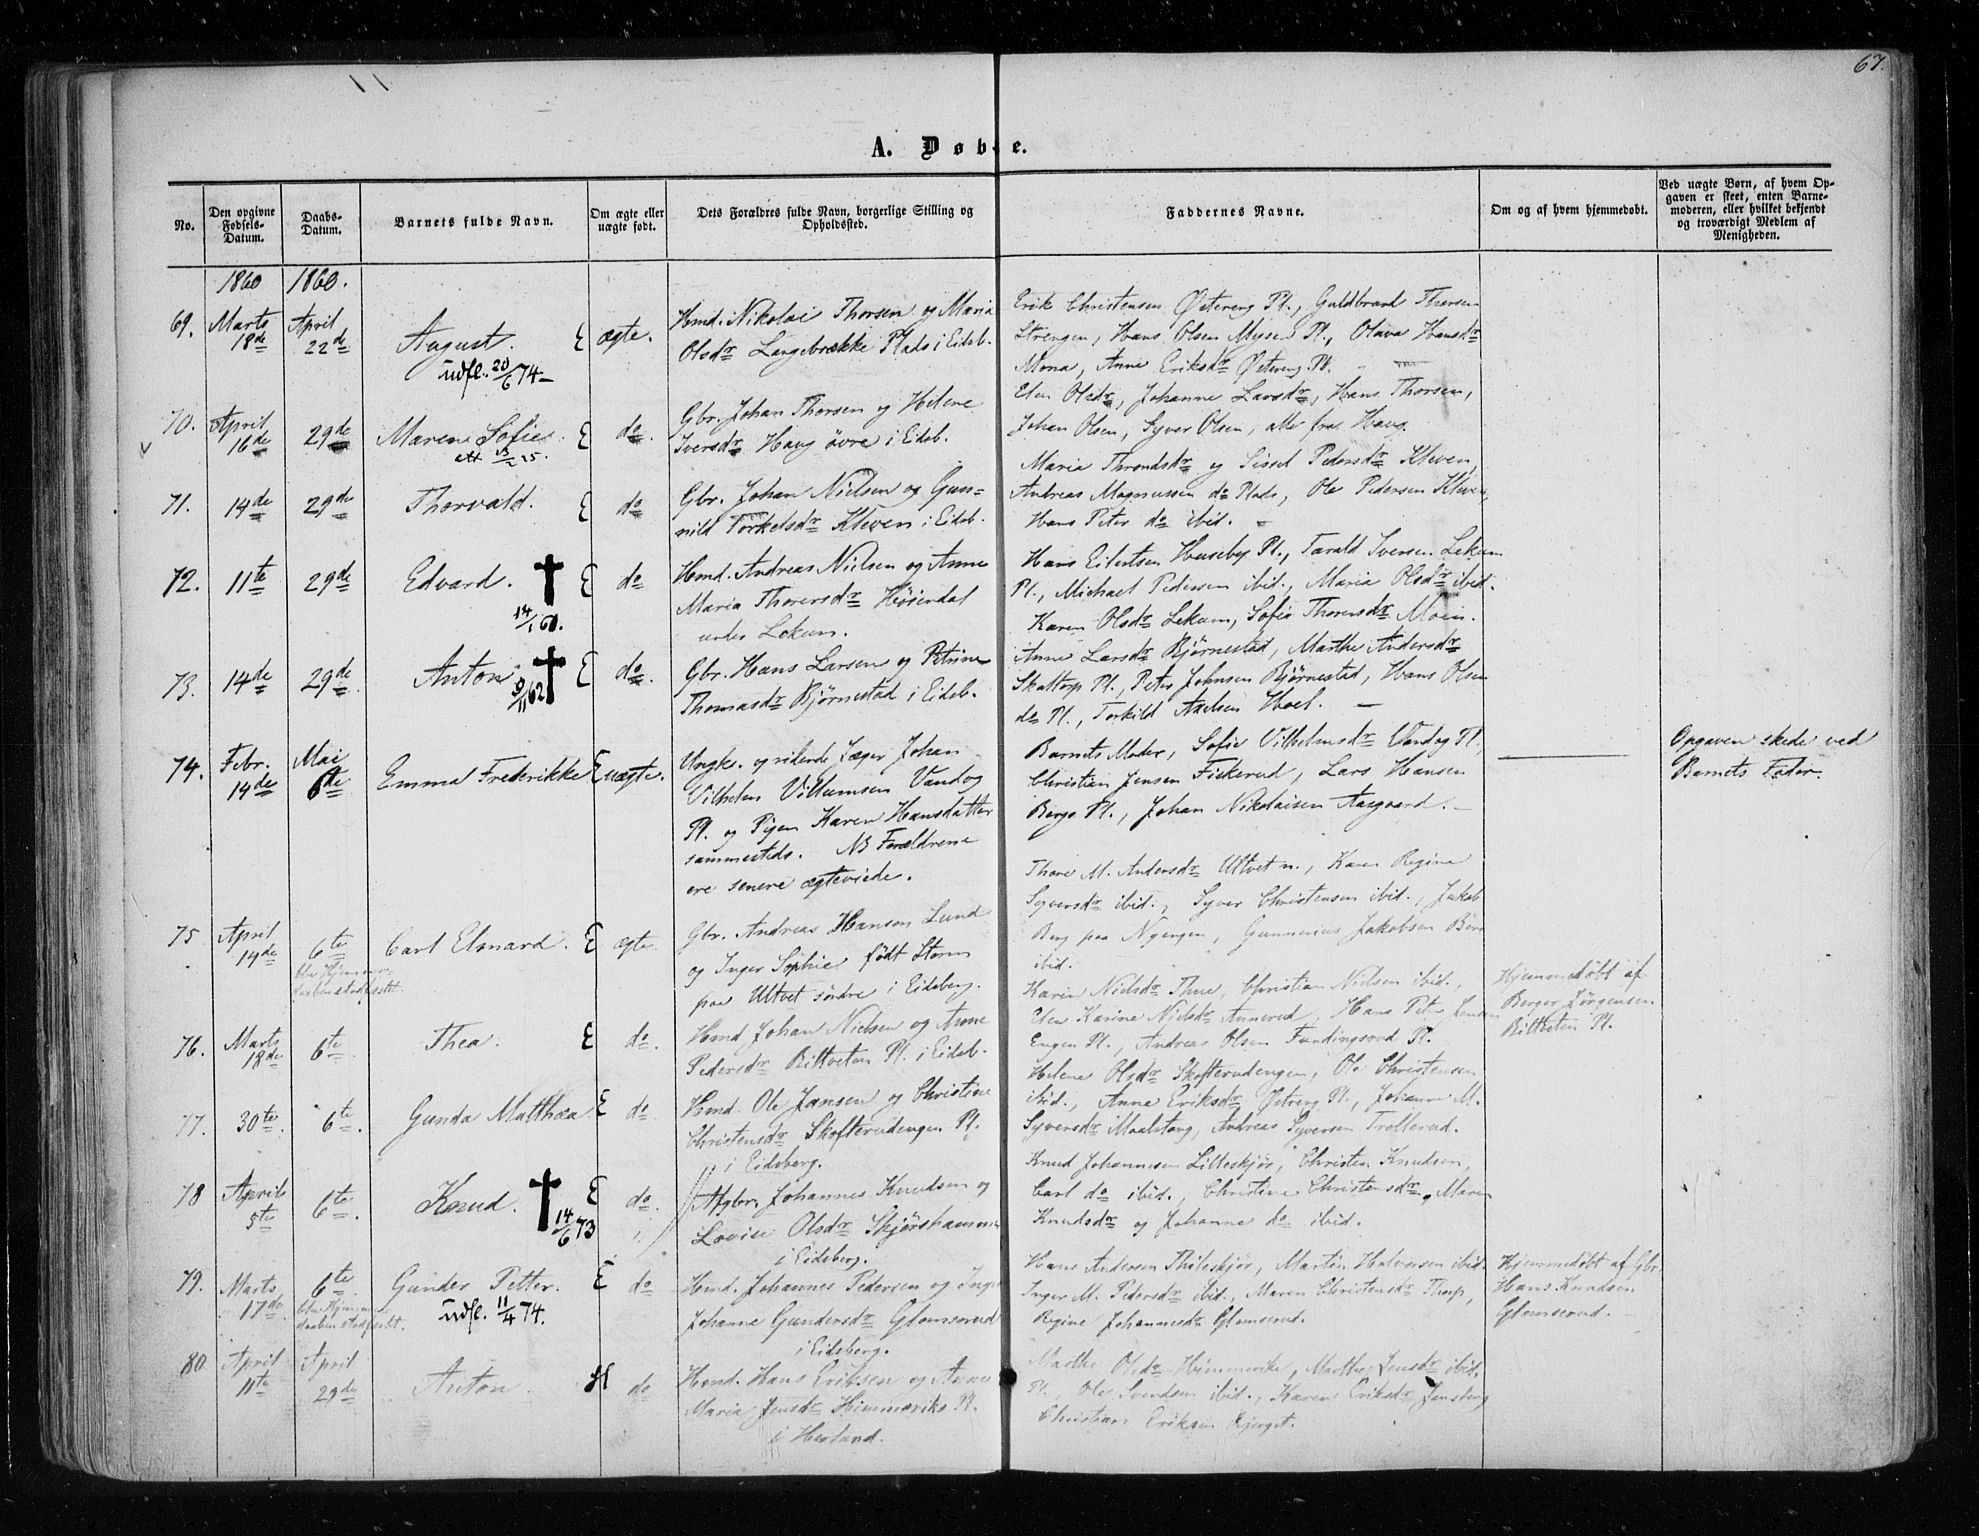 67.
A. Døbte.
No.
Den opgivne Fødsels-Datum.
Daabs-Datum.
Barnets fulde Navn.
Om ægte eller uægte født.
Dets Forældres fulde Navn, borgerlige Stilling og Opholdssted.
Faddernes Navne.
Om og af hvem hjemmedøbt.
Ved uægte Børn, af hvem Opgaven er skeet, enten Barnemoderen, eller hvilket bekjendt og troværdigt Medlem af Menigheden.
1860 1860.
69. Marts 18de April 22de August. E ægte.
udfl. 20/6 74
Hmd. Nikolai Thorsen og Maria
Olsdr Langebrække Plads i Eidsb.
Erik Christensen Østereng Pl., Guldbrand Thorsen
Strengen, Hans Olsen Mysen Pl., Olava Hansdr
Mona, Anne Eriksdr Østereng Pl.
70. April 16de 29de Maren Sofie. E do.
Gbr. Johan Thorsen og Helene
Iversdr Haug øvre i Eidsb.
Elen Olsdr, Johanne Larsdr, Hans Thorsen,
Johan Olsen, Syver Olsen, alle fra Haug.
71. 14de 29de Thorvald. E do
Gbr. Johan Nielsen og Gun=
nild Torkelsdr Kleven i Eidsb.
Maria Throndsdr og Sissel Pedersdr Kleven,
Andreas Magnussen do Plads, Ole Pedersen Kleven,
Hans Peter do ibid.
72. 11te 29de Edvard. E do
14/1 60.
Hmd. Andreas Nielsen og Anne
Maria Thorersdr Høiendal
under Lekum.
Hans Eilertsen Huseby Pl., Tarald Iversen Lekum
Pl., Michael Pedersen ibid., Maria Olsdr ibid.
Karen Olsdr Lekum, Sofie Thorersdr Moen.
73. 14de 29de Anton E do.
9/11 62
Gbr. Hans Larsen og Petrine
Thomasdr Bjørnestad i Eidsb.
Anne Larsdr Bjørnestad, Marthe Andersdr
Skattorp Pl., Peter Johnsen Bjørnestad, Hans Olsen
do Pl., Torkild Axelsen Hoel.
74. Febr. 14de Mai 6te Emma Frederikke E uægte.
Ungk. og ridende Jæger Johan
Vilhelm Villumsen Vandog
Pl. og Pigen Karen Hansdatter
sammesteds. NB Forældrene
ere senere ægteviede.
Barnets Moder, Sofie Vilhelmsdr Vandog Pl.,
Christian Jensen Fickerud, Lars Hansen
Berge Pl., Johan Nikolaisen Aasgaard.
Opgaven skede ved
Barnets Fader.
75 April 14de 6te Carl Elmard. E ægte.
Gbr. Andreas Hansen Lund
og Inger Sophie født Storm
paa Ultvet søndre i Eidsberg.
Thore M. Andersdr Ultvet n., Karen Regine
Syversdr ibid., Syver Christensen ibid., Jakob
Berg paa Nyengen, Gunnerius Jakobsen Berg
ibid.
76. Marts 18de 6te Thea. E do.
Hmd. Johan Nielsen og Anne
Pedersdr Bittveten Pl. i Eidsb.
Karen Nielsdr Thue, Christian Nielsen ibid.,
Elen Karine Nielsdr Annerud, Hans Peter Jensen
Engen Pl., Andreas Olsen Fundingsrud Pl.
Hjemmedøbt af
Berger Jørgensen
Bittveten Pl.
77. 30te 6te. Gunda Matthea E do
Hmd. Ole Jansen og Christine
Christensdr Skofterudengen Pl.
i Eidsberg.
Helene Olsdr Skofterudengen, Ole Christensen
ibid., Anne Eriksdr Østreng Pl., Johanne M.
Syversdr Maalstang, Andreas Syversen Trollerud.
78 April 5te 6te. Knud. E do.
14/6 73
Afgbr. Johannes Knudsen og
Lovise Olsdr Skjørshammer
i Eidsberg.
Knud Johannesen Lilleskjør, Christen Knudsen,
Carl do ibid., Christine Christensdr, Maren
Knudsdr og Johanne do ibid.
79. Marts 17de 6te Gunder Petter. E do
udfl. 11/4 74.
Hmd. Johannes Pedersen og Inger
Johanne Gundersdr Glomserud
i Eidsberg.
Hans Andersen Thileskjør, Martin Halvorsen ibid.
Inger M. Pedersdr ibid., Maren Christensdr Thorp,
Regine Johannesdr Glomserud.
Hjemmedøbt af Gbr.
Hans Knudsen
Glomserud.
80 April 11te April 29de Anton. H do
Hmd. Hans Eriksen og Anne
Maria Jensdr Himmerike Pl.
i Herland.
Marthe Olsdr Himmerike, Marthe Jensdr ibid.
Pl. Ole Svendsen ibid., Karen Eriksdr Jensberg
Christian Eriksen Bjerget.